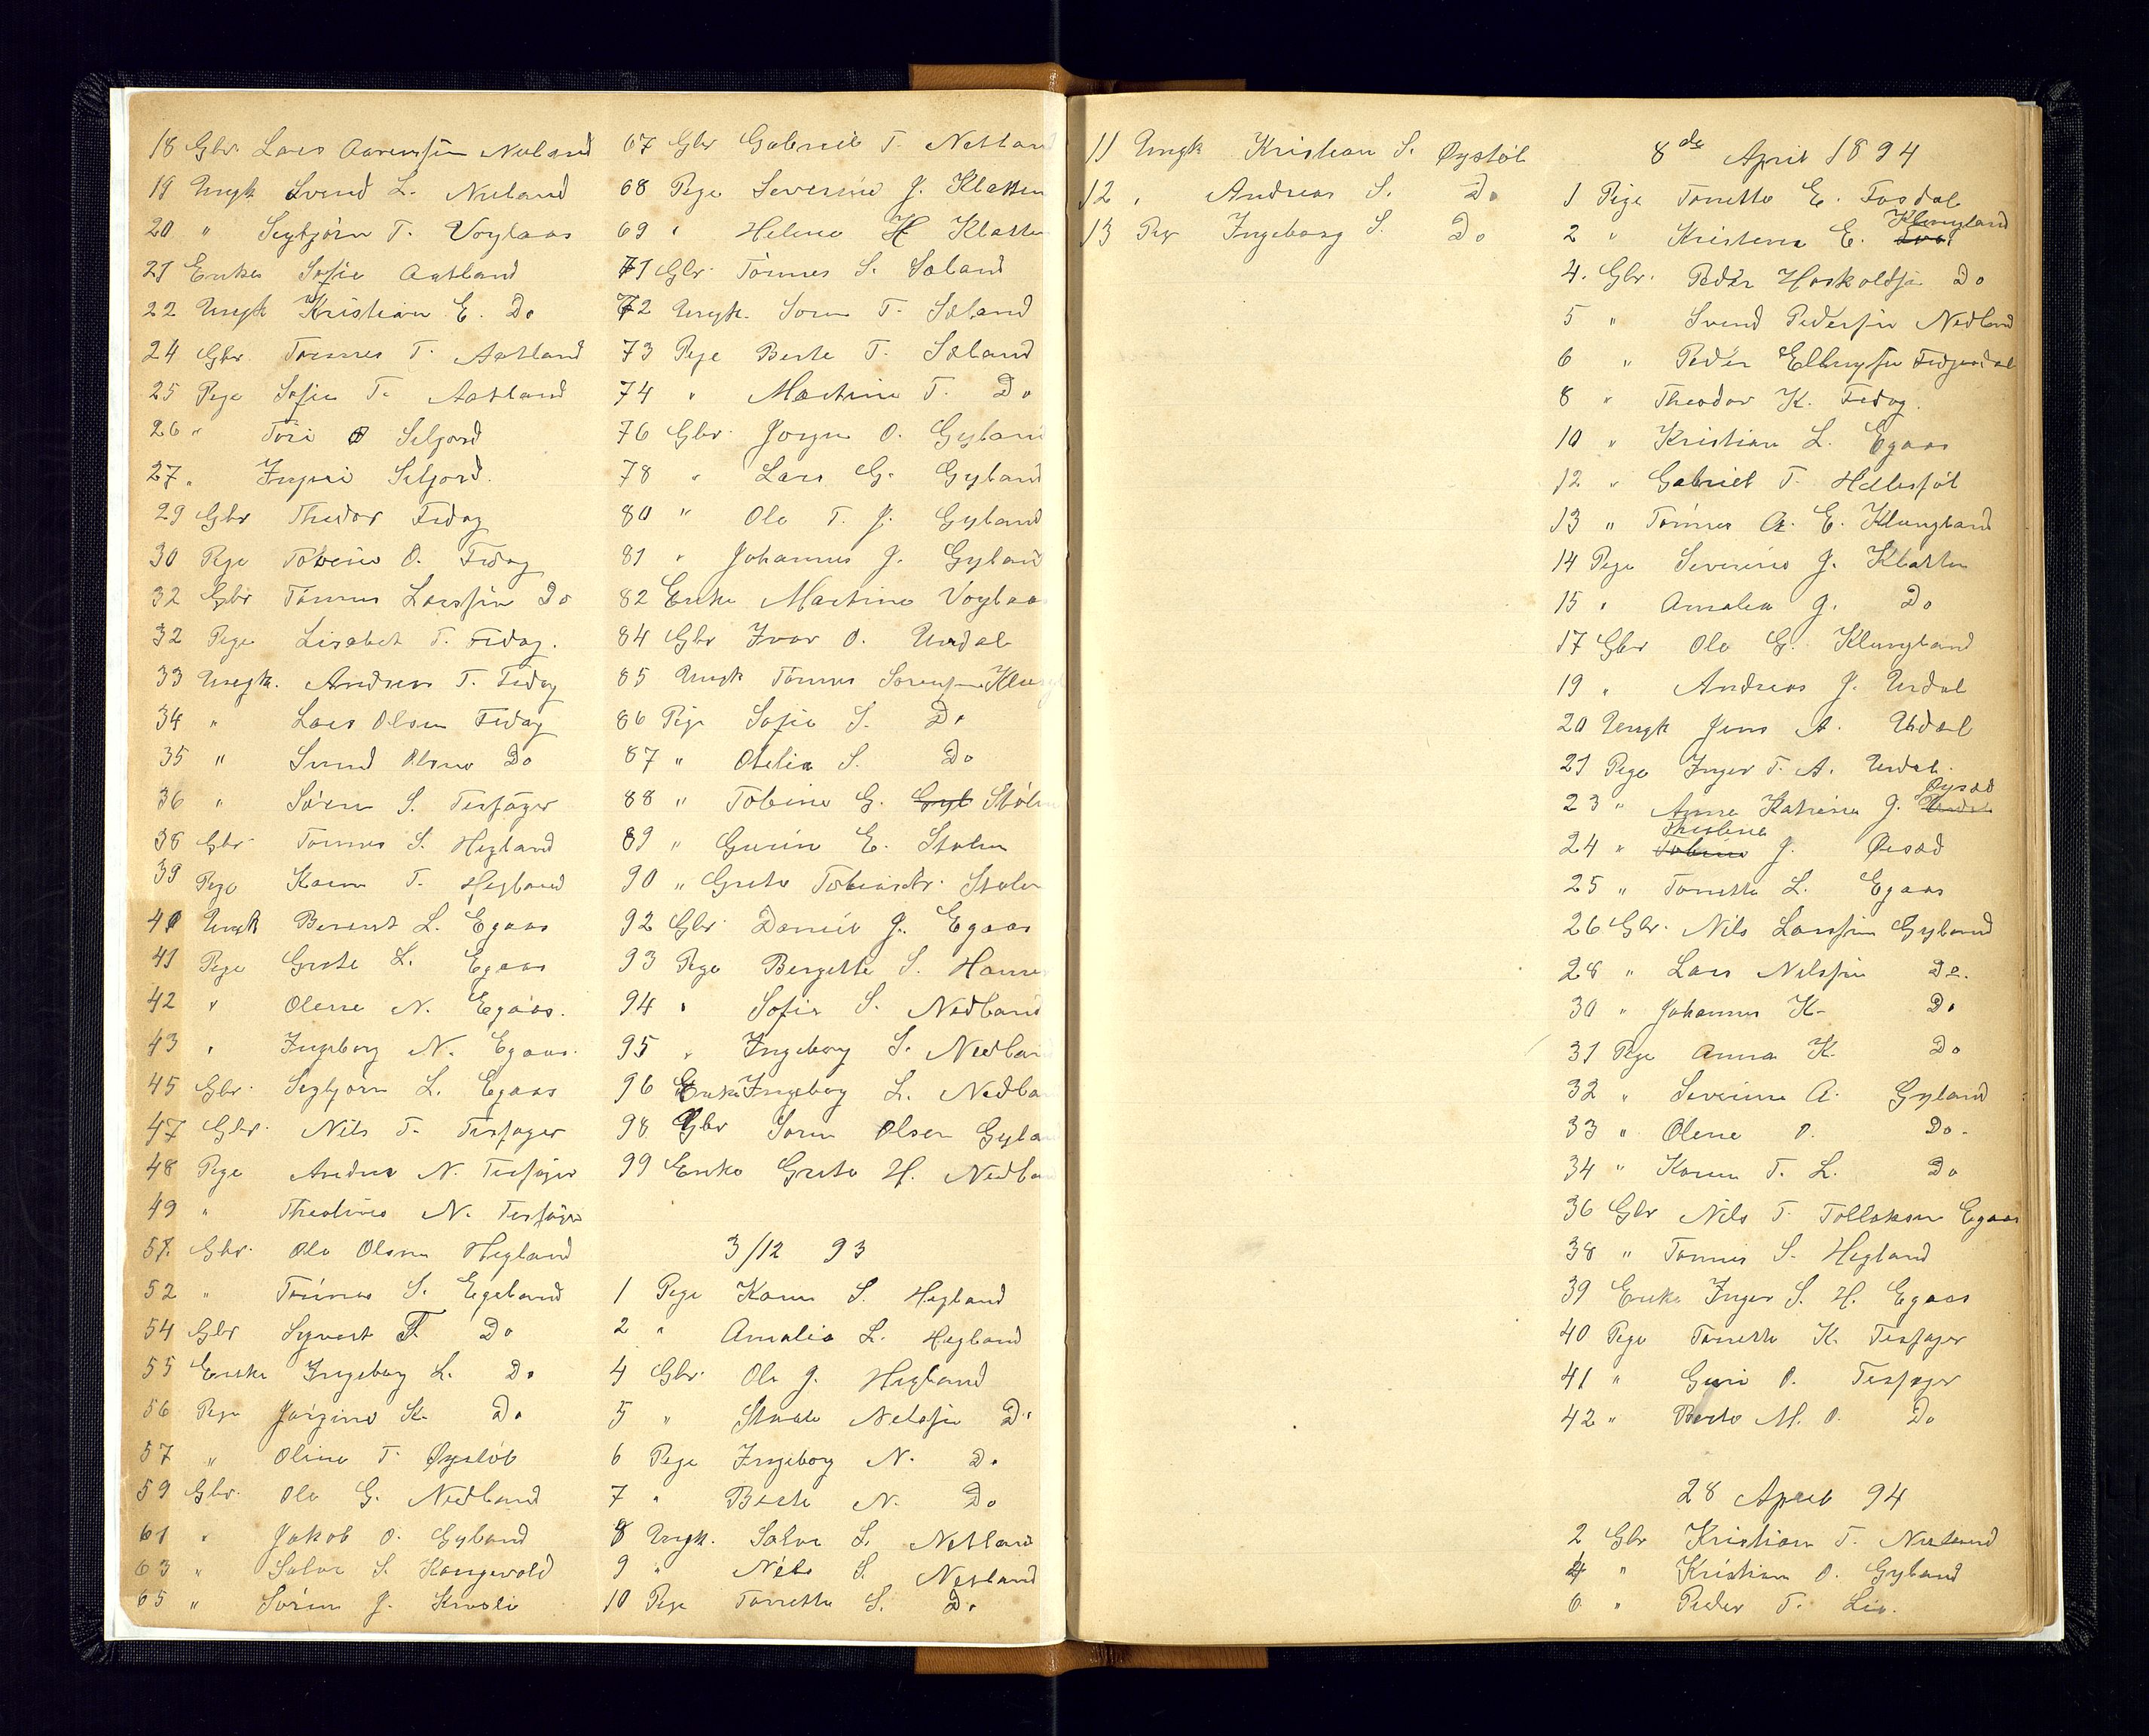 18 Gbr. Lars Aarenssen Nuland
19 Ungk Svend L. Nuland
20 " Segbjörn T. Voglaas
21 Enke Sofie Aatland
22 Ungk Kristian E. Do
24 Gbr Tönnes T. Aatland
25 Pige Sofie T. Aatland
26 " Tori O Seljord
27 " Ingri Seljord.
29 Gbr Thedor Fidag
30 Pige Tobine O. Fidag
32 Gbr Tönnes Larssen Do
32 Pige Lisabet T. Fidag.
33 Ungk. Andreas T. Fidag
34 " Lars Olsen Fidag
35 " Svend Olsen Do
36 " Sören S. Tesfager
38 Gbr Tönnes S. Hegland
39 Pige Karen T. Hegland
40 Ungk Berent L. Egaas
41 Pige Grete L. Egaas
42 " Olene N. Egaas.
43 " Ingeborg N. Egaas.
45 Gbr. Segbjørn L. Egaas
47 Gbr. Nils T. Tesfager
48 Pige Andrea N. Tesfager
49 " Theoline N. Tesfager
51 Gbr. Ole Olsen Hegland
52 " Tönnes S. Egeland
54 Gbr Syvert T. Do
55 Enke Ingeborg L. Do
56 Pige Jörgine K. Do
57 " Oline T. Øystöl
59 Gbr. Ole G. Nedland
61 " Jakob O. Gyland
63 " Salve S. Kongevold
65 " Sören J.
67 Gbr Gabriel T. Netland
68 Pige Severine J. Klatten
69 " Helene H Klatten
71 Gbr. Tönnes S. Søland
72 Ungk. Sören T. Søland
73 Pige Berte T. Søland
74 " Martine T. Do
76 Gbr. Jørgen O. Gyland
78 " Lars G. Gyland
80 " Ole T. J. Gyland
81 " Johannes J. Gyland
82 Enke Martine Voglaas
84 Gbr Ivar O. Urdal
85 Ungk Tönnes Sørensen Klu
86 Pige Sofie S. Do
87 " Otelia S. Do
88 " Tobine G. Gyl Stöln
89 " Gurine E. Støln
90 " Grete Tobiasdr. Støln
92 Gbr. Daniel J. Egaas
93 Pige Bergette S.
94 " Sofie S. Nedland
95 " Ingeborg S. Nedland
96 Enke Ingeborg L. Nedla
98 Gbr Sören Olsen Gyla
99 Enke Grete H. Nedla
3/12 93
1 Pige Karen S. Hegland
2 " Amalie L. Hegland
4 Gbr. Ole J. Hegland
5 " Staale Nelssen Do
6 Pige Ingeborg N. Do
7 " Berte N. Do
8 Ungk. Salve S. Netland
9 " Nels S. Netland
10 Pige Tonette S. Do
11 Ungk Kristian S. Øystöl
12 " Andreas S. Do
13 Pige Ingeborg S. Do
8de April 1894
1 Pige Tonette E. Fosdal
2 " Kristene E. Klungland
4. Gbr. Peder Haskoldsen Do
5 " Svend Pedersen Nedland
6 " Peder Ellingsen Fidjeidal
8 " Theodor K. Fidag.
10 " Kristian L. Egaas
12 " Gabriel T. Hellestöl
13 " Tönnes A. E. Klungland
14 Pige Severine J. Klatten
15 " Amalia J. Do
17 Gbr Ole G. Klungland
19 " Andreas J. Urdal
20 Ungk Jens A. Urdal
21 Pige Inger T. A. Urdal.
23 " Anne Katrine J. Urdal Øysæd
24 " Tobine Theoline J. Øisæd
25 " Tonette L. Egaas
26 Gbr. Nils Larssen Gyland
28 " Lars Nilssen Do.
30 " Johannes K. Do
31 Pige Anna K. Do
32 " Severine A. Gyland
33 " Olene O. Do.
34 " Karen T. L. Do
36 Gbr Nils T. Tollaksen Egaas
38 " Tønnes S. Hegland
39 Enke Inger S. H. Egaas
40 Pige Tonette K. Tesfager
41 " Guri O. Tesfager
42 " Berte M. O. Do
28 April 94
2 Gbr Kristian T. Nuland
4 " Kristian O. Gyland
6 " Peder T. Lie.